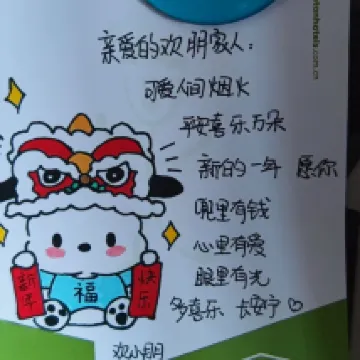 亲爱的欢朋家人：
可爱人间烟火
平安喜乐万朵
新的一年 愿你
兜里有钱
心里有爱
眼里有光
多喜乐 长安宁♡
新年
快乐
福
欢小朋